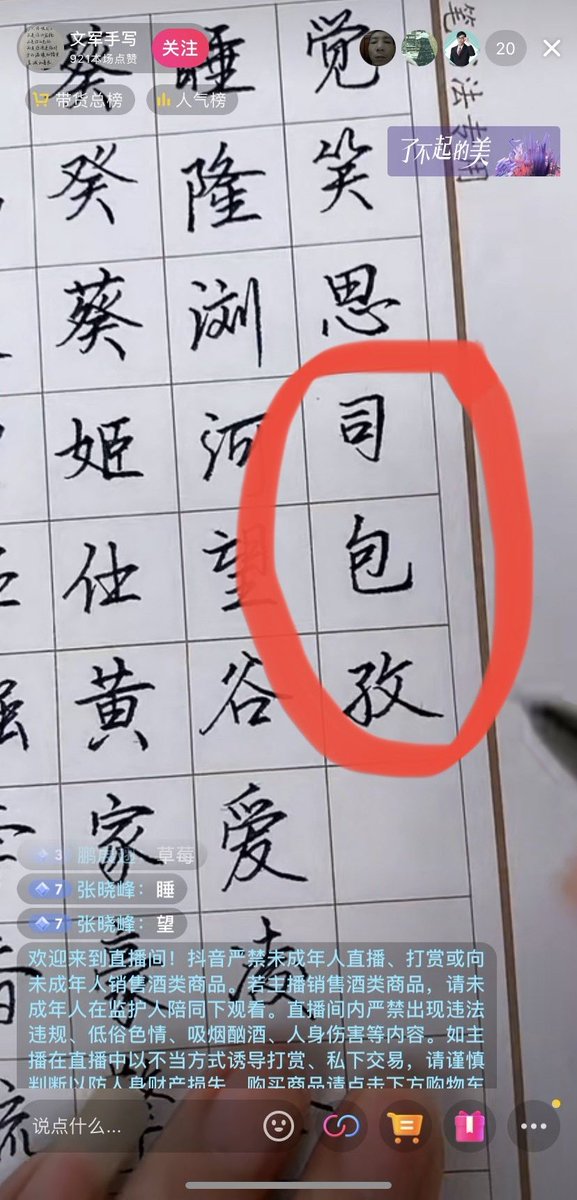 文军手写
921本场点赞
关注
20
带货总榜
人气榜
了不起的美
笔
法专用
葵 睡 觉
癸 隆 笑
葵 浏 思
姬 河 司
仕 望 包
黄 谷 孜
家 爱
豪 凌
3 草莓
7 张晓峰：睡
7 张晓峰：望
欢迎来到直播间！抖音严禁未成年人直播、打赏或向
未成年人销售酒类商品。若主播销售酒类商品，请未
成年人在监护人陪同下观看。直播间内严禁出现违法
违规、低俗色情、吸烟酗酒、人身伤害等内容。如主
播在直播中以不当方式诱导打赏、私下交易，请谨慎
判断以防人身财产损失。购买商品请点击下方购物车
说点什么...